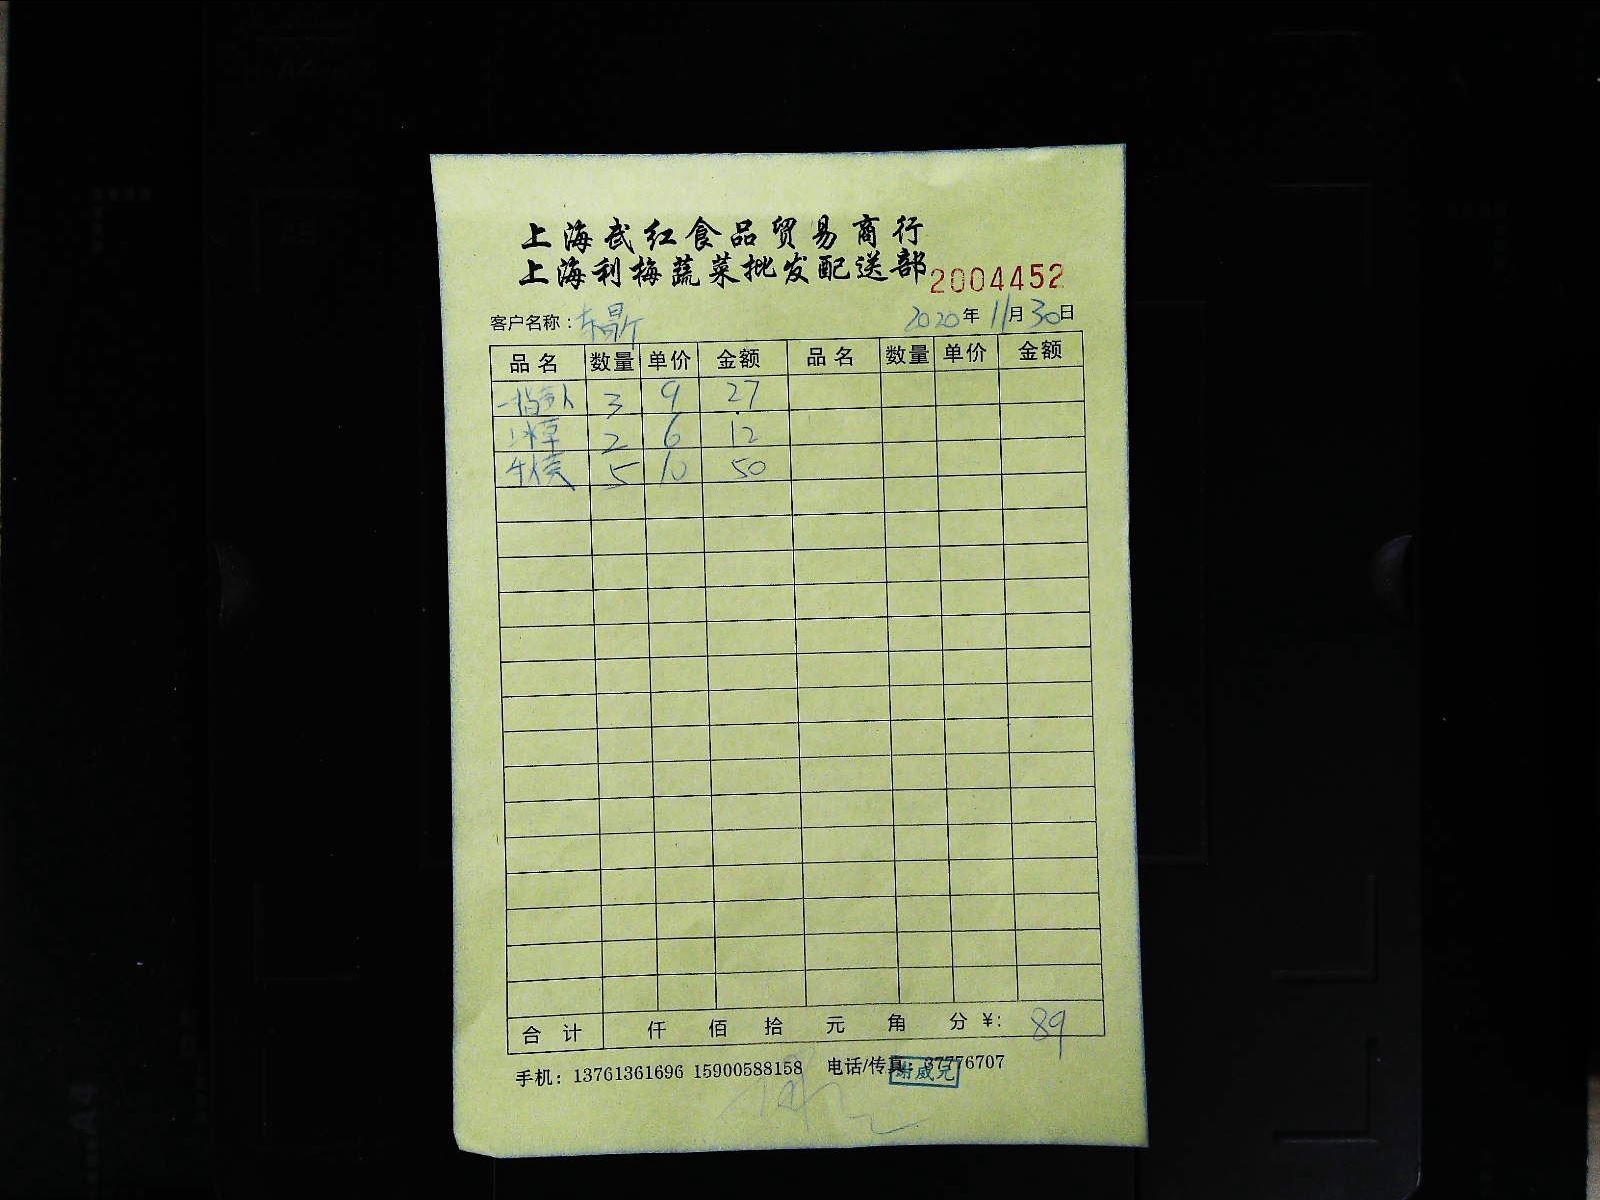 上海武红食品贸易商行
上海利梅蔬菜批发配送部 2004452
客户名称： 2020年11月30日
品名 数量 单价 金额 品名 数量 单价 金额
3 9 27
冰草 2 6 12
5 10 50
合计 仟 佰 拾 元 角 分 ￥: 89
手机：13761361696 15900588158 电话/传真：37776707
谢威克